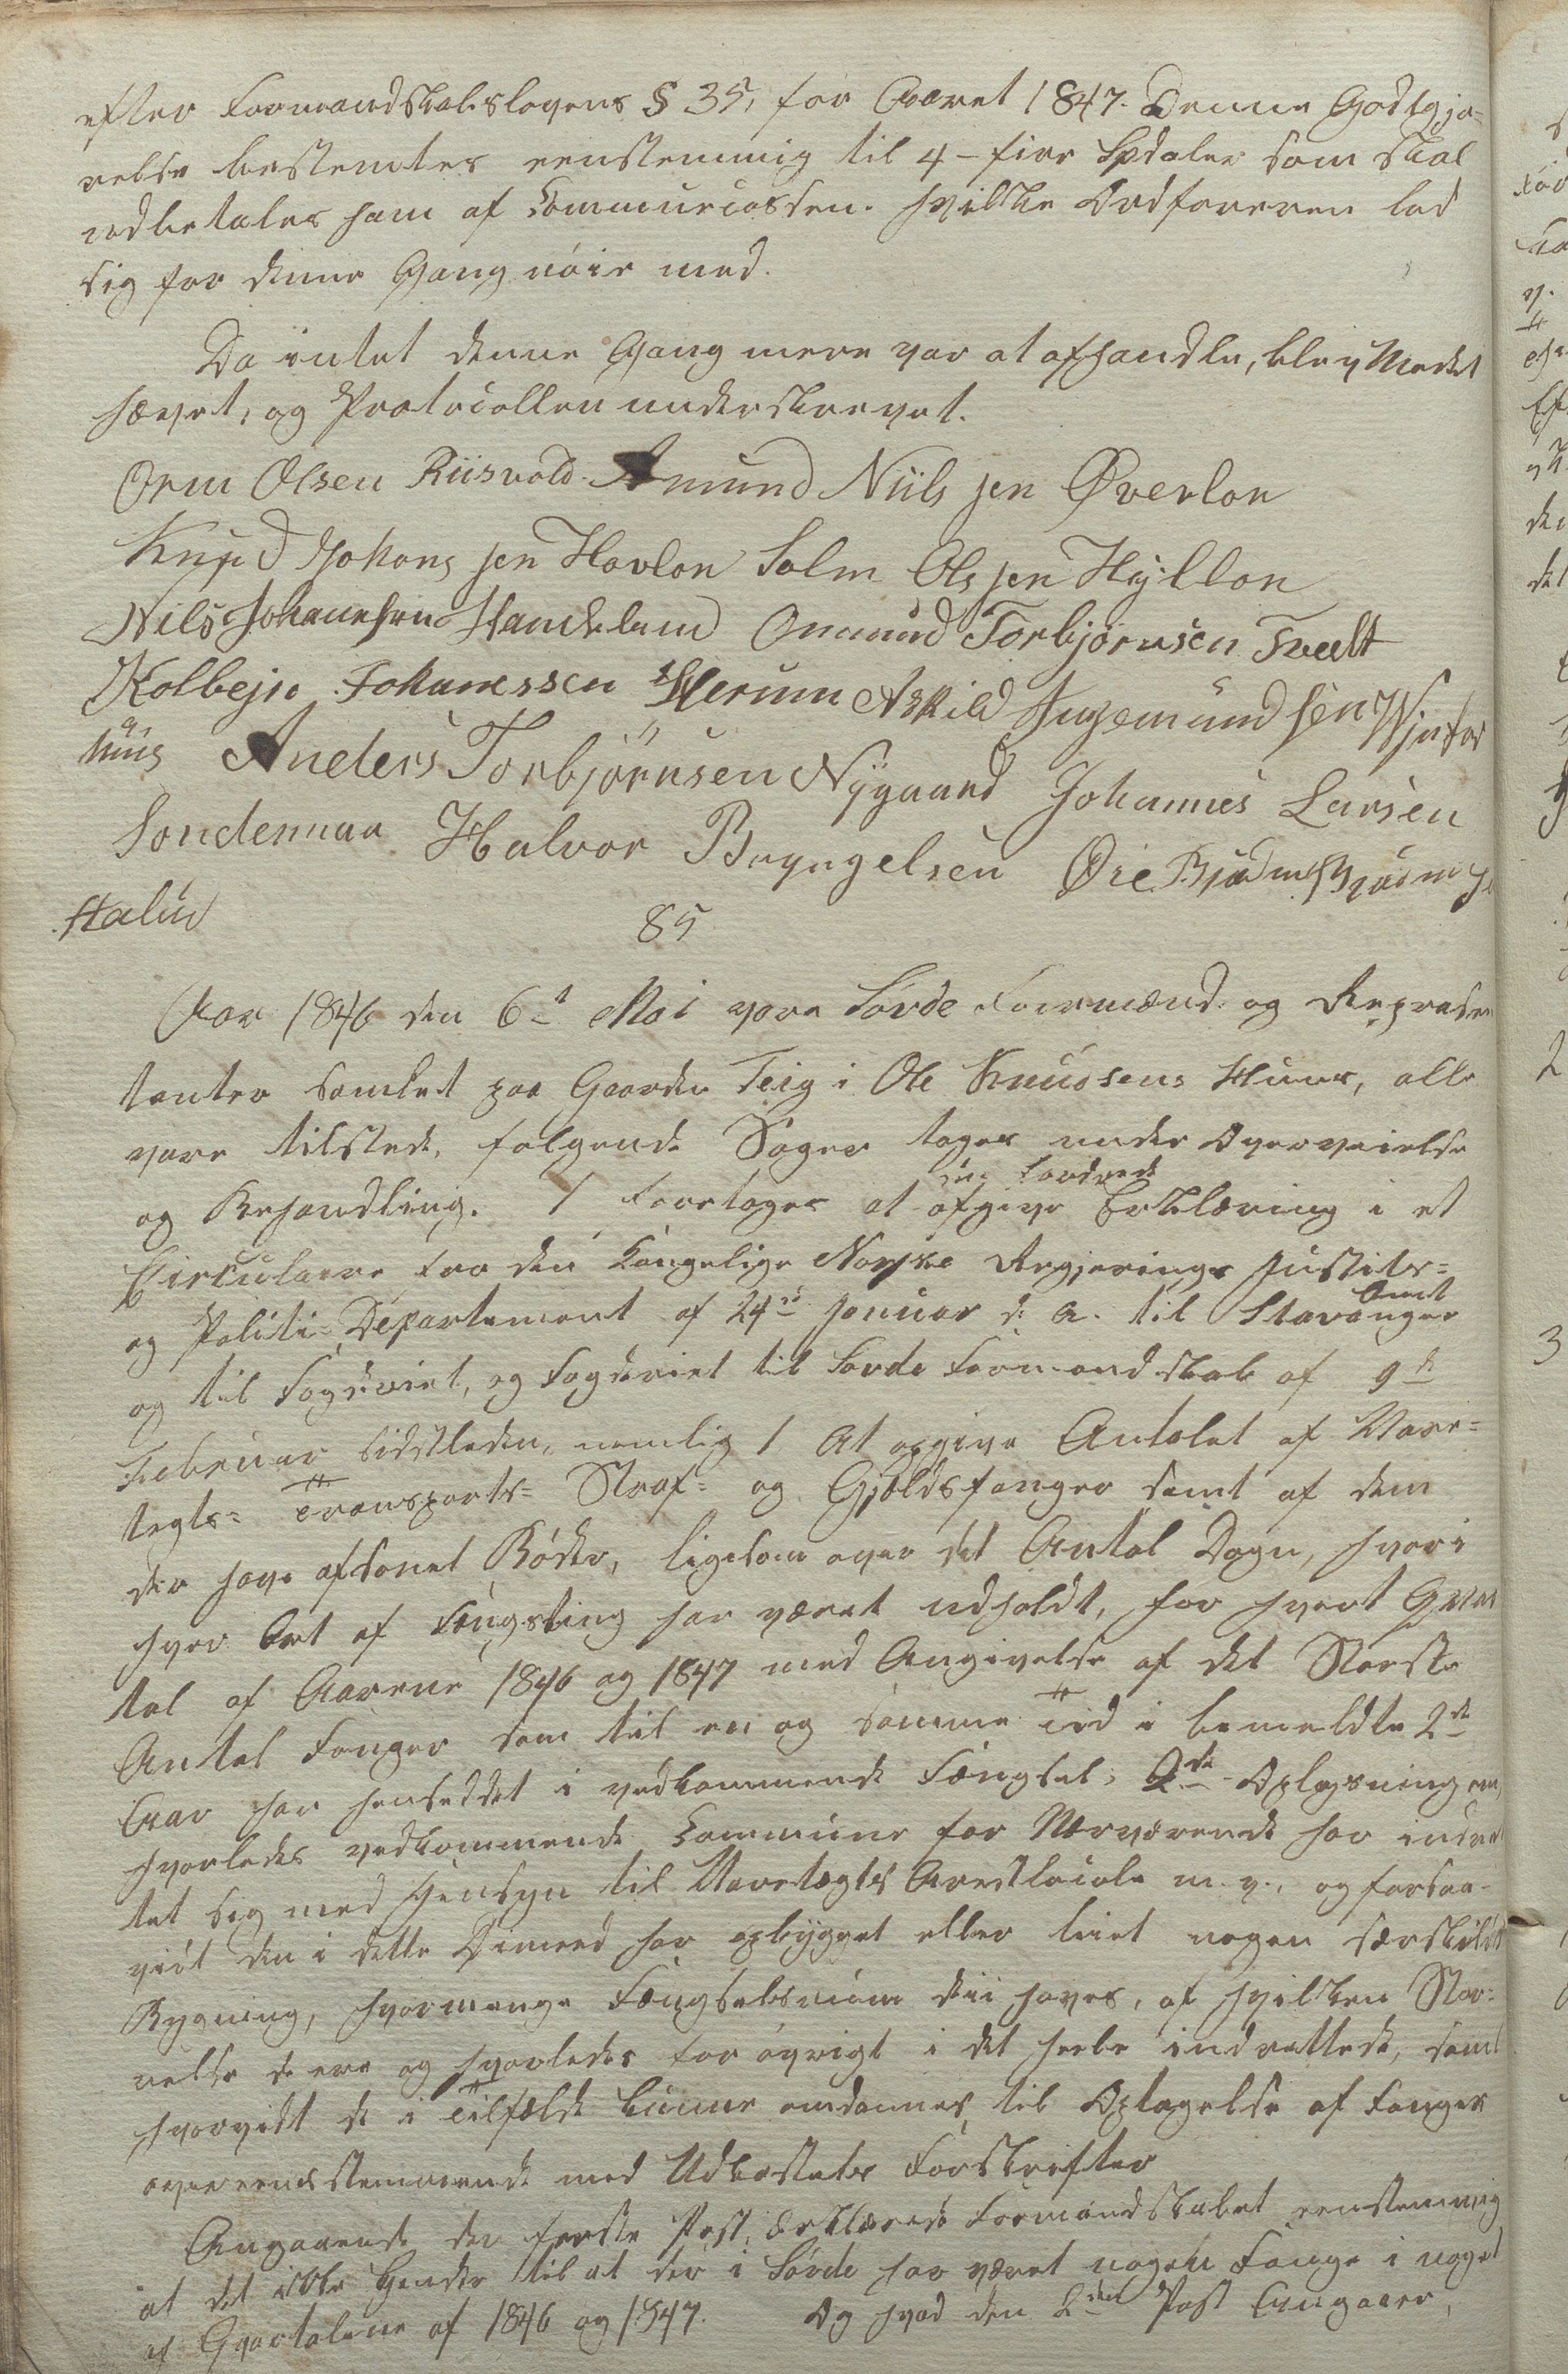 efter Formandskabslovens § 35, for Aaret 1847. Denne Godtgjø-
relse bestemtes eenstemmig til 4 - fire Spdaler som skal
udbetales ham af Communecassen. hvilke Ordføreren lod
sig for denne Gang nöie med.
Da intet denne Gang mere var at afhandle, blev Mødet
hævet, og Protocollen underskrevet.
Orm Olsen Riisvold. Amund Niils sen Øverlon
Knud Johans sen Hovlon Solm Ols sen Hyllon
Nils Johanesen Handeland Omund Torbjørnsen Tvedt
Kolbejn Johanessen Herum Askild Ingemund sen Vinter
huus Anders Torbjörnsen Nÿgaard Johannes Larsen
Sondenaa Halvor Bryngelsen Øie Bjødne Bjødne s
Stalin
85
Aar 1846 den 6t Mai vare Søvde Formænd og Repræsen
tanter samlet paa Gaarden Teig i Ole Knudsens Huus, alle
vare tilstede, følgende Sager toges under Overveielse
og Behandling. 1 Foretages at afgive Erklæring i et
Circulaire fra den Kongelige Norske Regjerings Justits-
og Politi-Departement af 24de Januar d. a. til Stavanger Amt
og til Fogderiet, og Fogderiet til Søvde Formandskab af 9de
Februar sidstleden, nemlig 1 At opgive Antalet af Vare-
tægts- Transports- Straf- og Gjældsfanger samt af dem
der have afsonet Bøder, ligesom over det Antal Døgn, hvori
hver Art af Fængsling har været udholdt, for hvert Qvar
tal af Aarene 1846 og 1847 med Angivelse af det Største
Antal Fanger som til en og samme Tid i bemeldte 2de
Aar har hensiddet i vedkommende Fængsel; 2de Oplysning om,
hvorledes vedkommende Commune for Nærværende har indret
tet sig med Hensyn til Varetægts Arestlocale m. v., og forsaa-
vidt den i dette Øiemed har opbygget eller leiet nogen særskildt
Bygning, hvormange Fængselsrum deri haves, af hvilken Stør-
relse de ere og hvorledes for øvrigt i det heele indrettede, samt
hvorvidt de i Tilfælde kunne omdannes til Optagelse af Fanger
overeensstemmende med Udkastets Forskrifter
Angaaende den første Post, Erklærede Formandskabet eenstemmig
at det ikke kjender til at der i Søvde har været nogen Fange i noget
af Qvartalene af 1846 og 1847. Og hvad den 2den Post Angaaer,